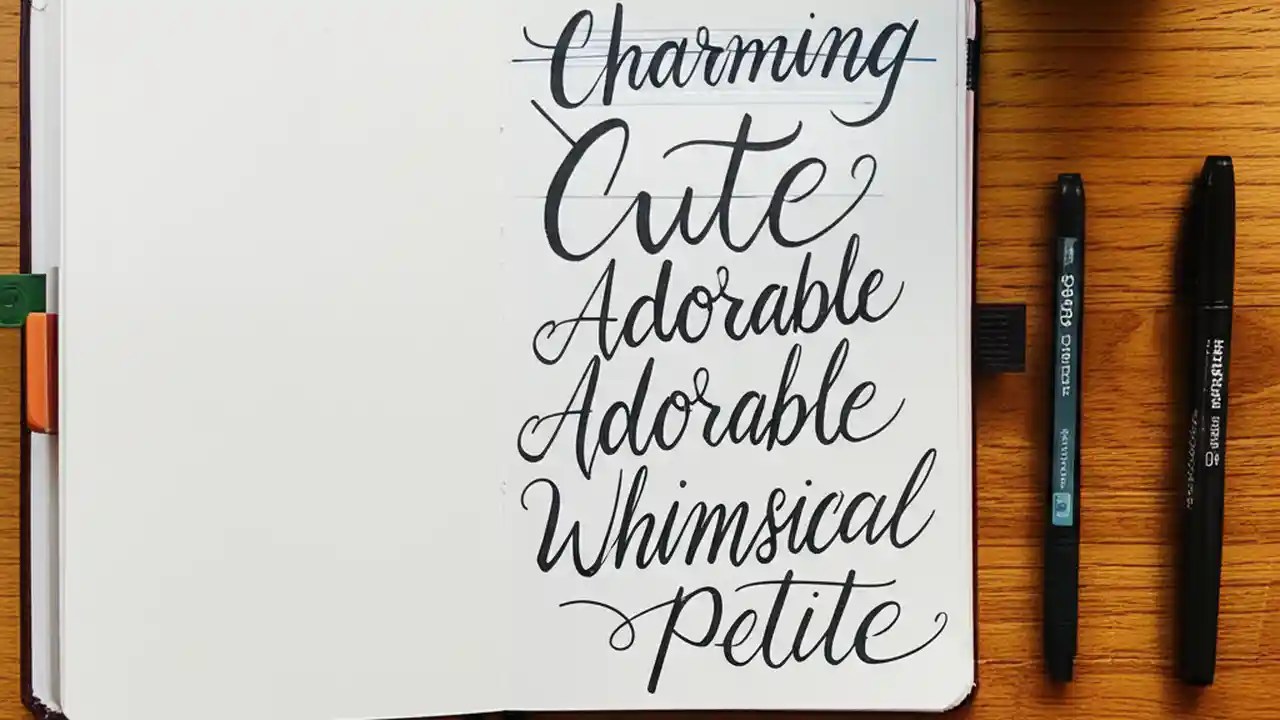 Charming
Cute
Adorable
Adorable
Whimsical
Petite